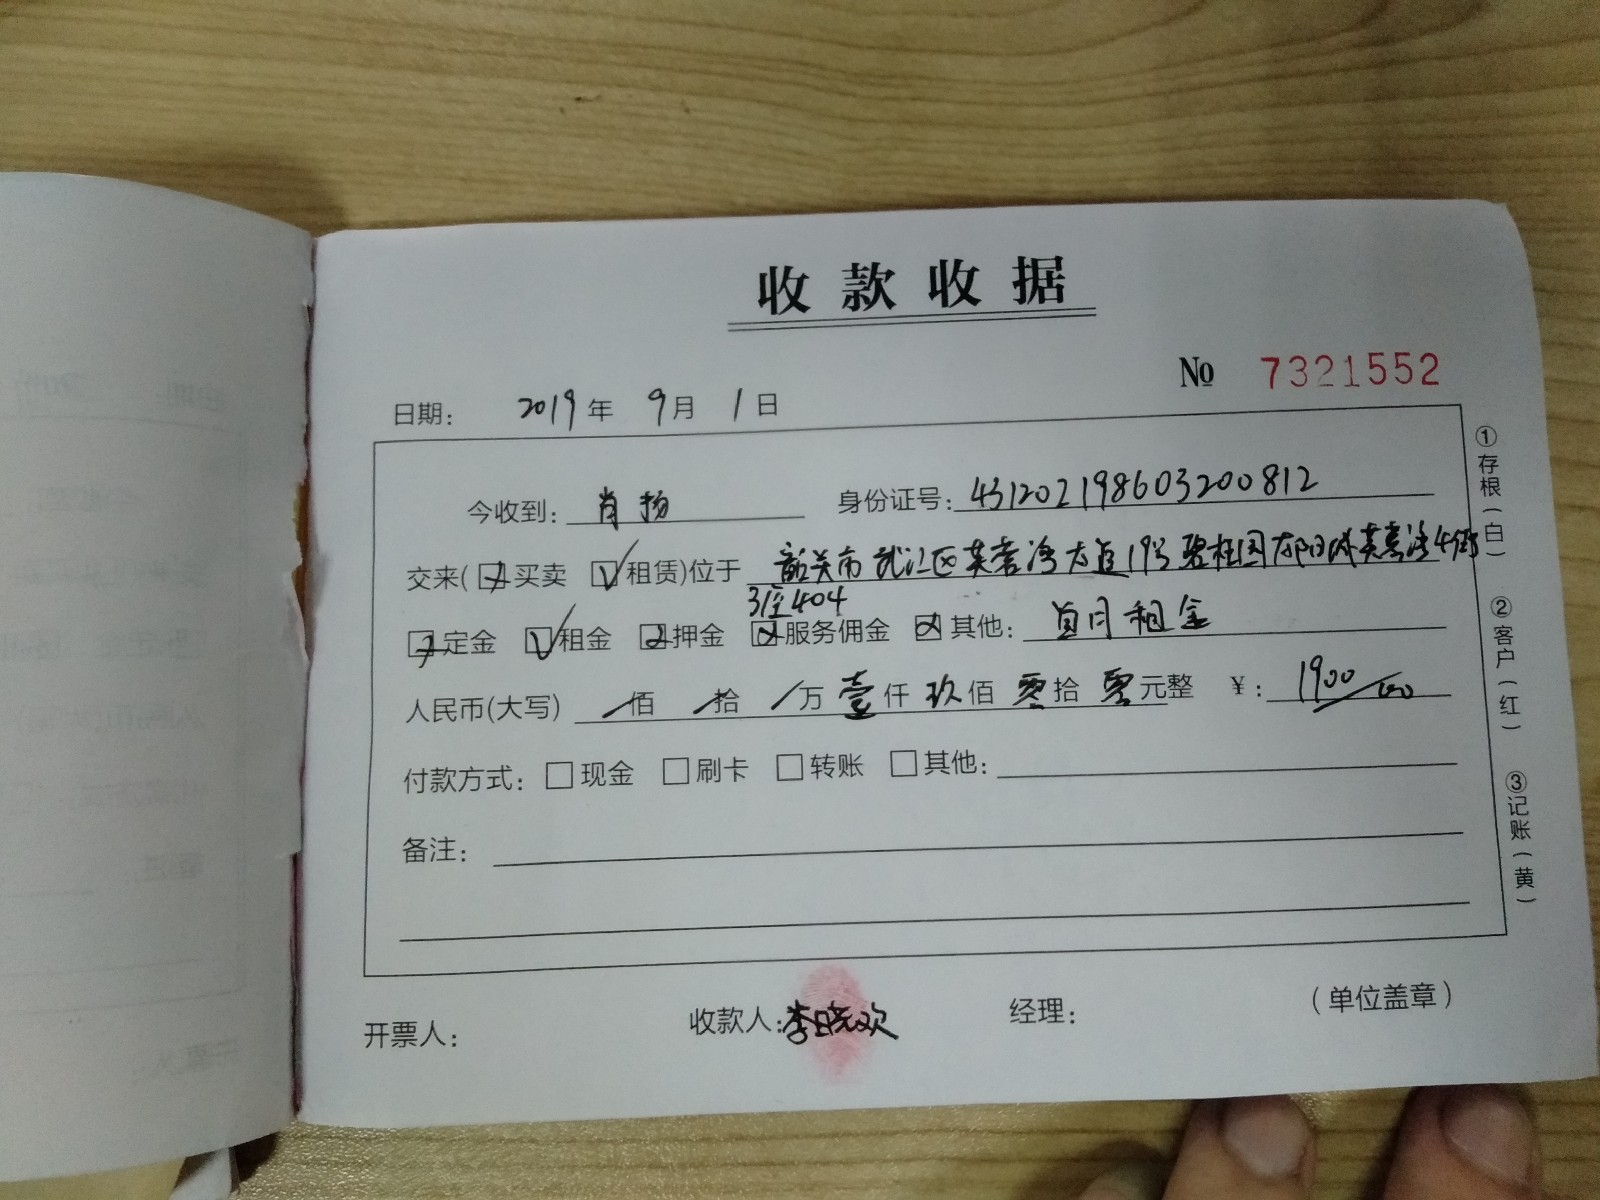 收款收据
№ 7321552
日期： 2019年 9月 1日
今收到： 肖扬 身份证号：431202198603200812
交来( 买卖 租赁)位于 韶关市武江区芙蓉湾大道19号碧桂园太阳城芙蓉湾4街
3座404
定金 租金 押金 服务佣金 其他： 首月租金
人民币(大写) /佰 /拾 /万 壹仟 玖佰 零拾 零元整 ￥：1900/00
付款方式：□现金 □刷卡 □转账 □其他：
备注：
开票人： 收款人：李晓欢 经理： （单位盖章）
①存根（白）
②客户（红）
③记账（黄）